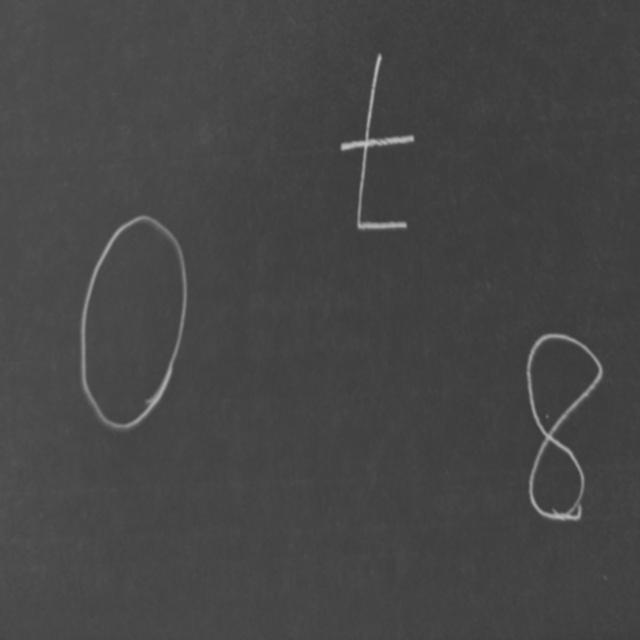 t
0
8